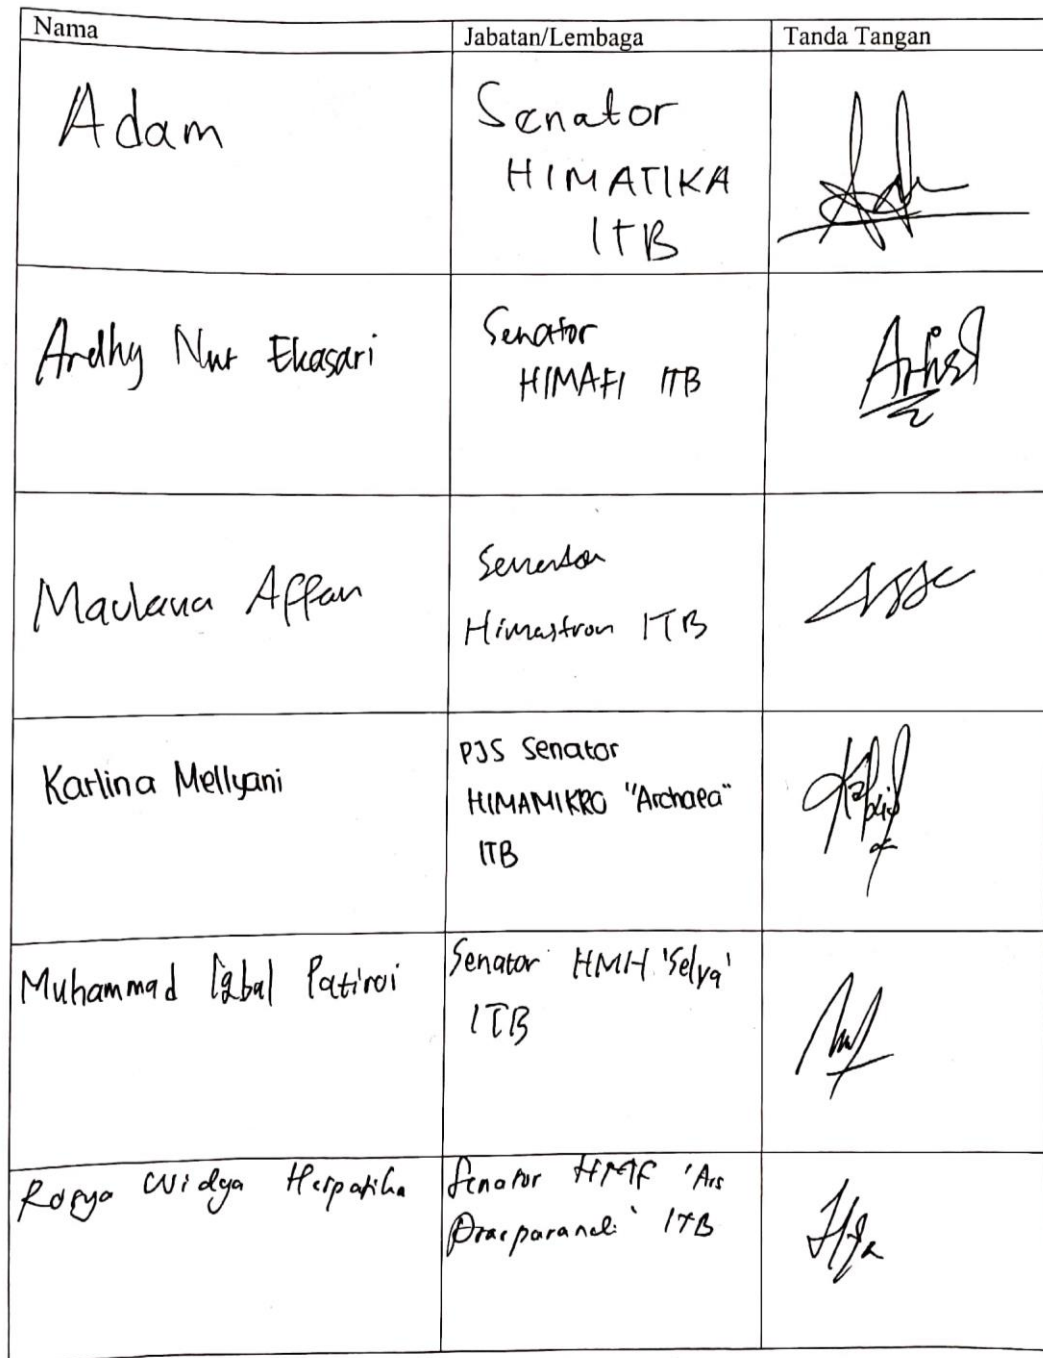 Nama Jabatan/Lembaga Tanda Tangan
Adam Senator
HIMATIKA
ITB
Ardhy Nur Ekasari Senator
HIMAFI ITB
Maulana Affan Senator
Himastron ITB
Karlina Mellyani PJS Senator
HIMAMIKRO "Archaea"
ITB
Muhammad Iqbal Patiroi Senator HMH 'Selva'
ITB
Widya Senator HMF 'Ars
Praeparandi' ITB